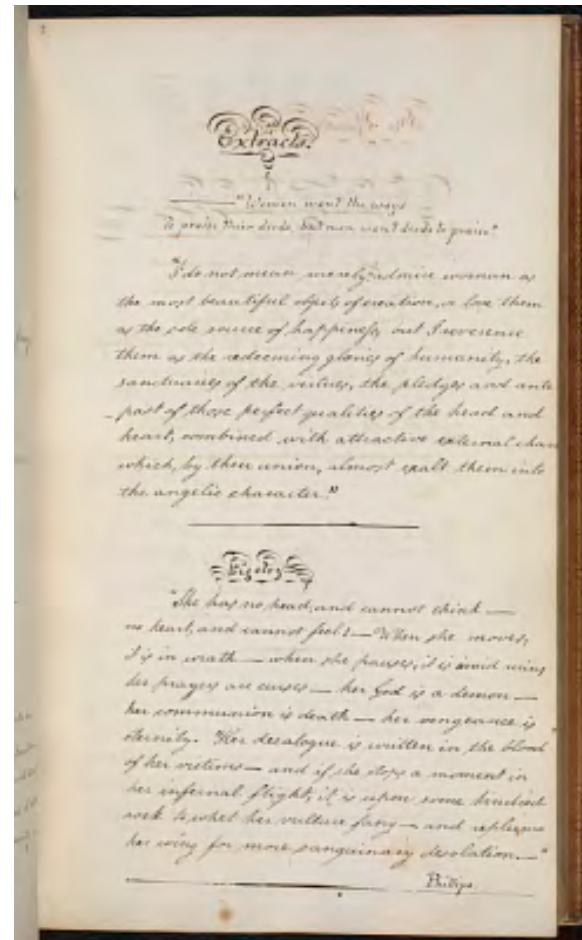 Extracts.
"Women want the ways
To praise their deeds, but men want deeds to praise"
"I do not mean merely admire woman as
the most beautiful objects of creation, or love them
as the sole source of happiness, but I reverence
them as the redeeming glories of humanity, the
sanctuaries of the virtues, the pledges and ante
-past of those perfect qualities of the head and
heart, combined with attractive external charm
which, by their union, almost exalt them into
the angelic character."
Bigotry
"She has no head, and cannot think —
no heart, and cannot feel! — When she moves,
it is in wrath — when she pauses, it is amid ruin;
her prayers are curses — her God is a demon —
her communion is death — her vengeance is
eternity. Her decalogue is written in the blood
of her victims — and if she stops a moment in
her infernal flight, it is upon some kindred
rock to whet her vulture fang — and replume
her wing for more sanguinary desolation. —"
Phillips